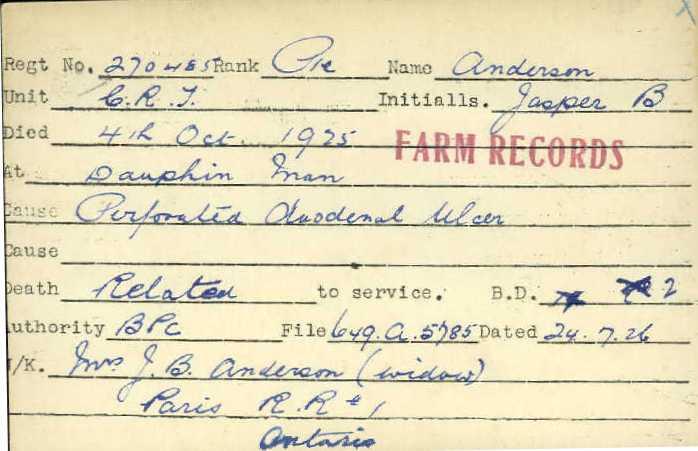 Regt No. 270485 Rank Pte Name Anderson
Unit C.R.T. Initialls. Jasper B
Died 4th Oct. 1925
FARM RECORDS
At Dauphin Man
Cause Perforated Duodenal Ulcer
Cause
Death Related to service. B.D. 2
Authority BPC File 649.A.5785 Dated 24.7.26
N/K. Mrs J. B. Anderson (widow)
Paris R.R #1
Ontario